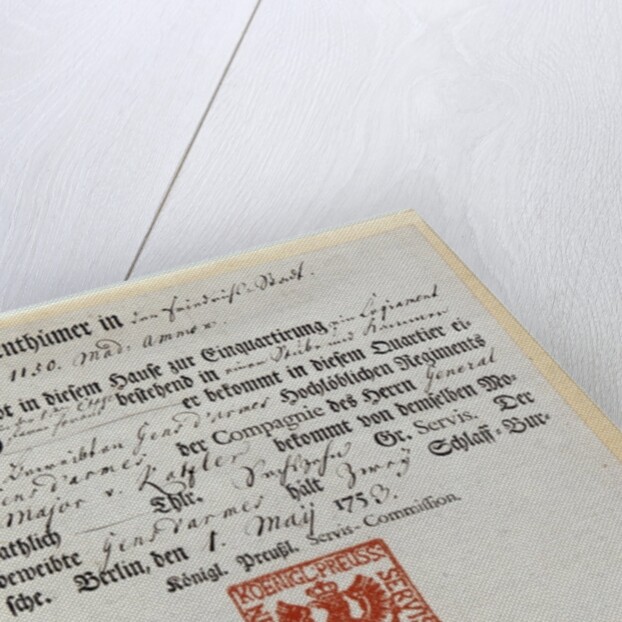 enthümer in der Friedrichs-Stadt.
1150. Mad. Ammon
in diesem Hause zur Einquartirung ein Logiament
bestehend in einer Stube und Kammer
er bekommt in diesem Quartier ei-
Beweibten Gensd'armes Hochlöblichen Regiments
Gensd'armes der Compagnie des Herrn General
Major v. Katzler bekommt von demselben Mo-
athlich Thlr. Gr. Servis. Der
beweibte Gensdarmes hält Zwey Schlaff-Bur-
sche. Berlin, den 1. Maÿ 1753.
Königl. Preußl. Servis-Commission.
KOENIGL. PREUSS
SERVIS